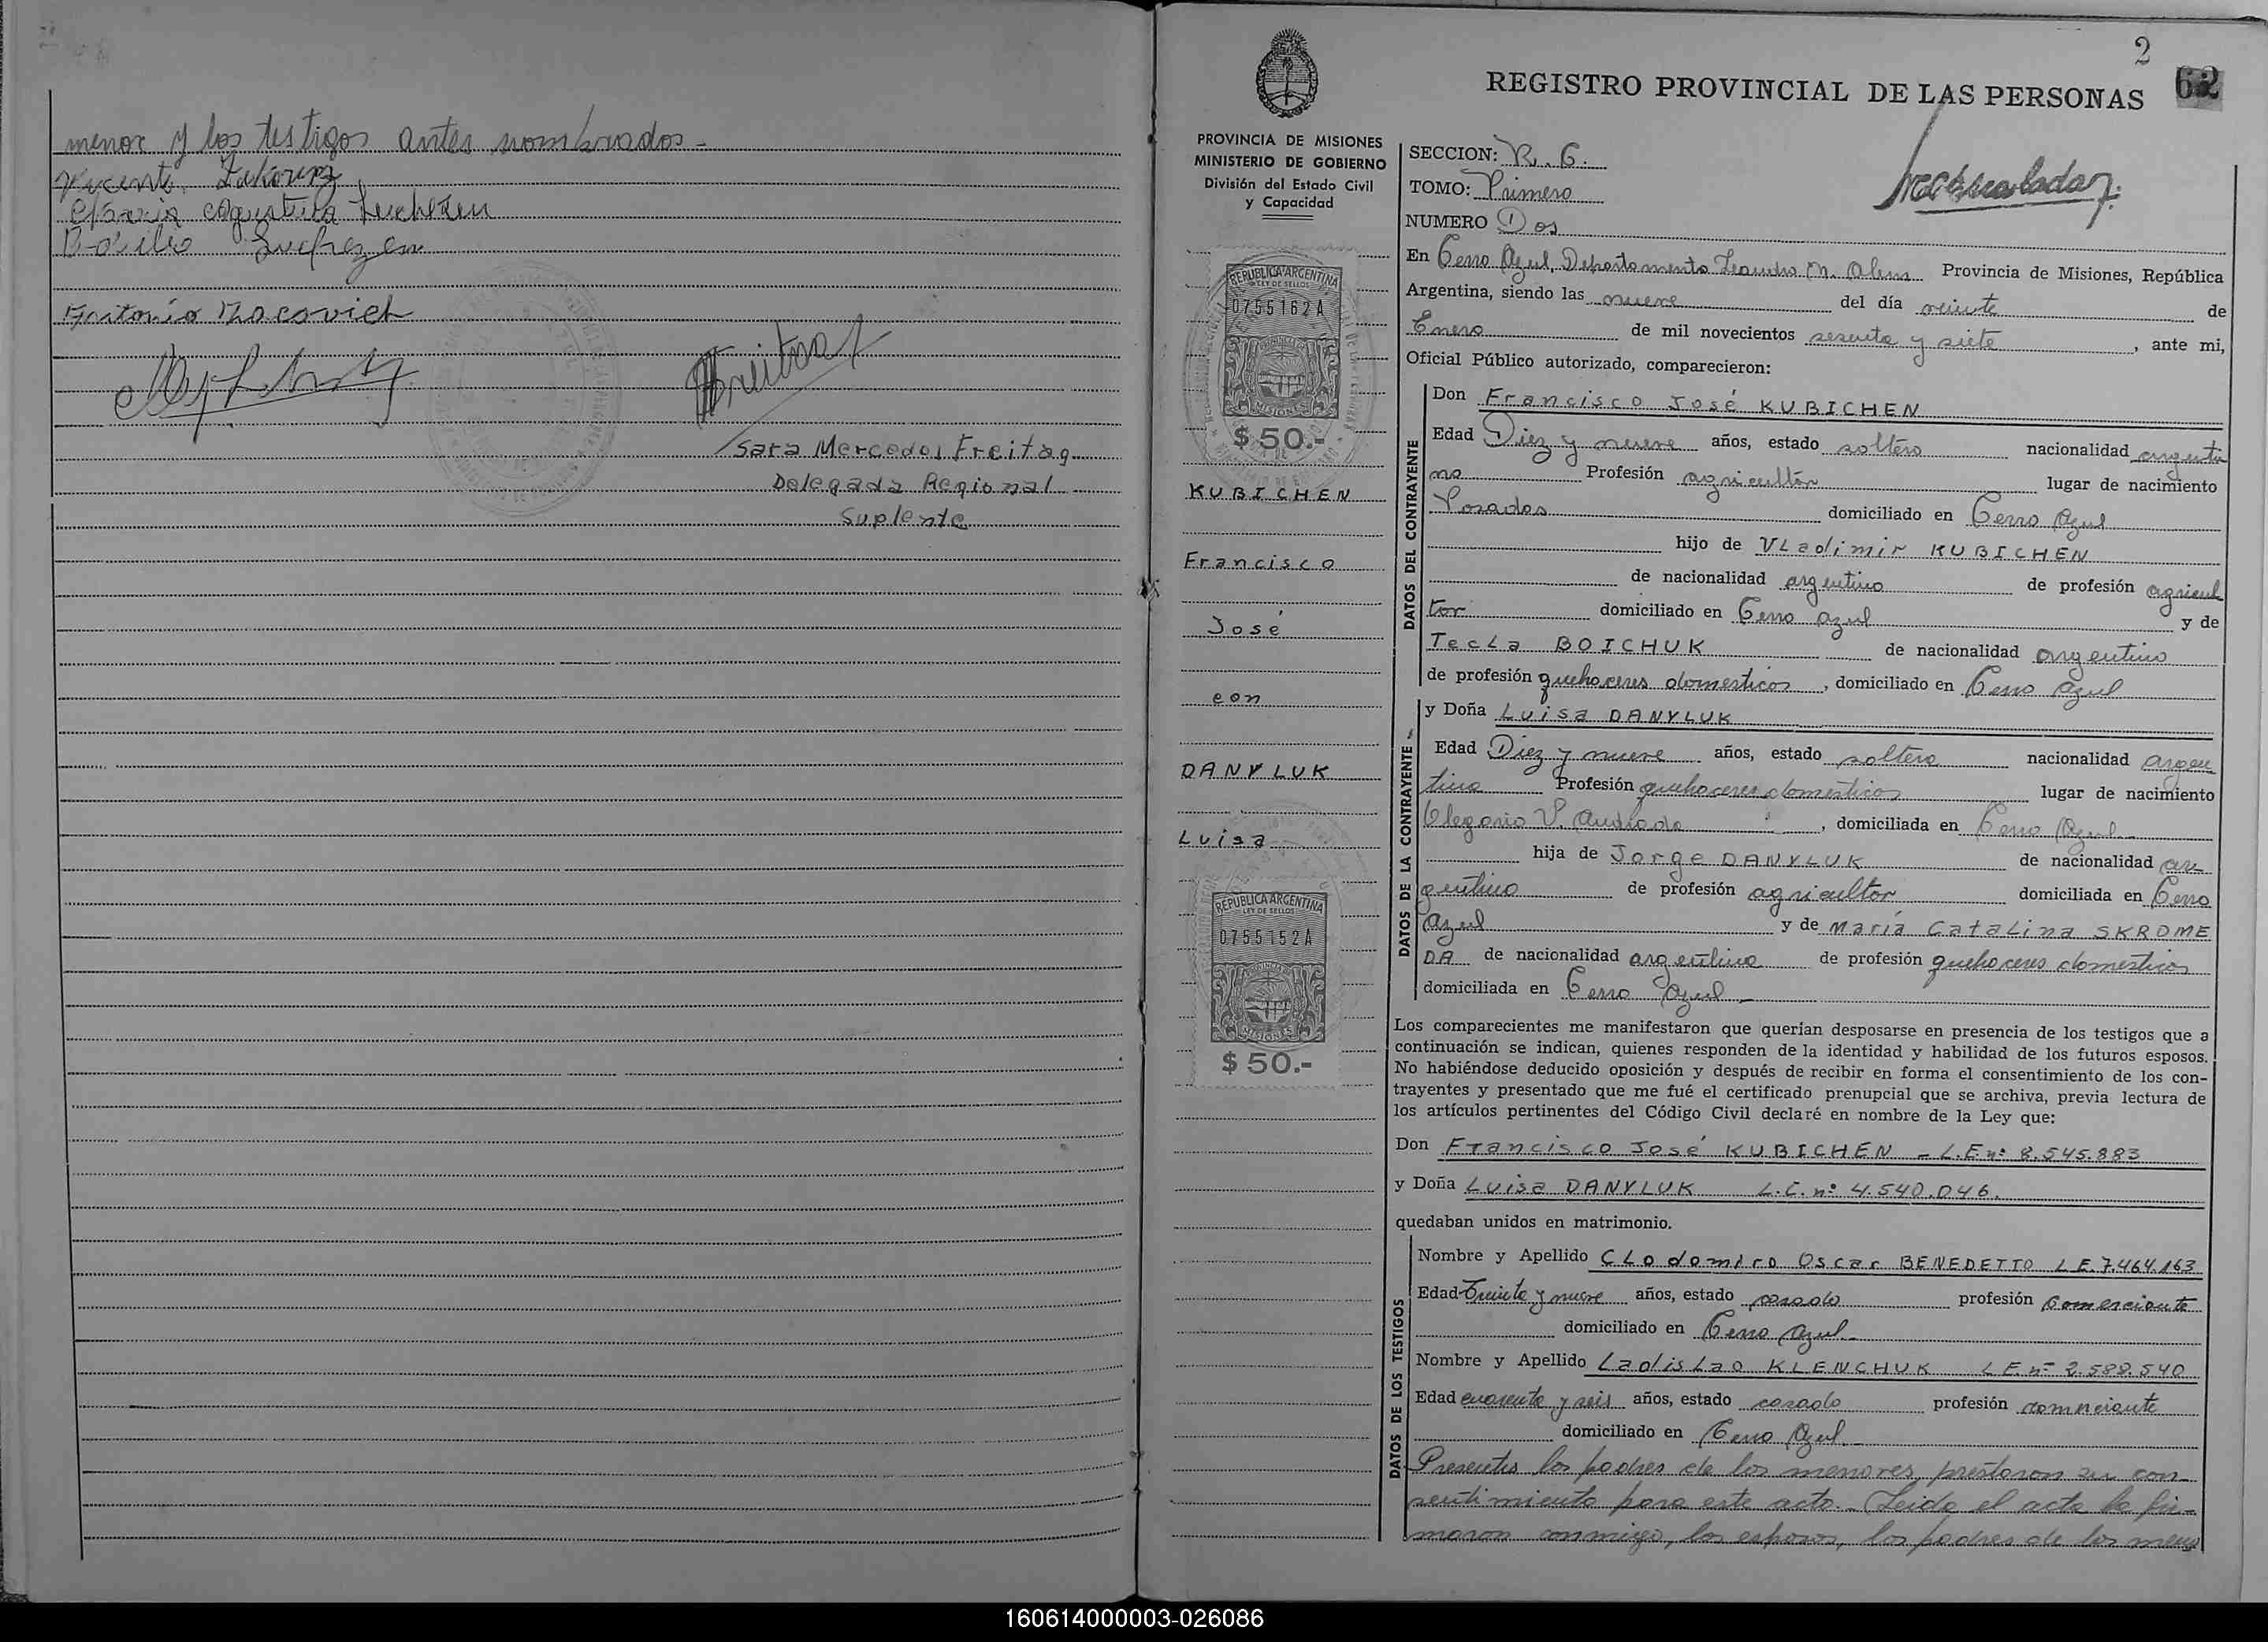 menor y los testigos antes nombrados -
Vicente
Basilio
Antonio
Sara Mercedes Freitag
Delegada Regional
Suplente
2
62
REGISTRO PROVINCIAL DE LAS PERSONAS
PROVINCIA DE MISIONES
MINISTERIO DE GOBIERNO
División del Estado Civil
y Capacidad
REPUBLICA ARGENTINA
LEY DE SELLOS
0755162A
MISIONES
$ 50.-
KUBICHEN
Francisco
José
con
DANYLUK
Luisa
REPUBLICA ARGENTINA
LEY DE SELLOS
0755152A
MISIONES
$ 50.-
SECCION: R. G.
TOMO: Primero
NUMERO Dos
En Cerro Azul, Departamento Leandro N. Alem Provincia de Misiones, República
Argentina, siendo las nueve del día veinte de
Enero de mil novecientos sesenta y siete, ante mi,
Oficial Público autorizado, comparecieron:
DATOS DEL CONTRAYENTE
Don Francisco José KUBICHEN
Edad Diez y nueve años, estado soltero nacionalidad argenti
no Profesión agricultor lugar de nacimiento
Posadas domiciliado en Cerro Azul
hijo de VLadimir KUBICHEN
de nacionalidad argentino de profesión agricul
tor domiciliado en Cerro Azul y de
TecLa BOICHUK de nacionalidad argentina
de profesión quehaceres domesticos, domiciliado en Cerro Azul
DATOS DE LA CONTRAYENTE
y Doña Luisa DANYLUK
Edad Diez y nueve años, estado soltera nacionalidad argen
tina Profesión quehaceres domesticos lugar de nacimiento
Olegario V. Andrade, domiciliada en Cerro Azul -
hija de Jorge DANYLUK de nacionalidad ar
gentino de profesión agricultor domiciliada en Cerro
Azul y de María CataLina SKROME
DA de nacionalidad argentina de profesión quehaceres domesticos
domiciliada en Cerro Azul -
Los comparecientes me manifestaron que querían desposarse en presencia de los testigos que a
continuación se indican, quienes responden de la identidad y habilidad de los futuros esposos.
No habiéndose deducido oposición y después de recibir en forma el consentimiento de los con-
trayentes y presentado que me fué el certificado prenupcial que se archiva, previa lectura de
los artículos pertinentes del Código Civil declaré en nombre de la Ley que:
Don Francisco José KUBICHEN - L.E nº 8.545.883
y Doña Luisa DANYLUK L.C. nº 4.540.046.
quedaban unidos en matrimonio.
DATOS DE LOS TESTIGOS
Nombre y Apellido CLodomiro Oscar BENEDETTO L E. 7.464.163
Edad Treinta y nueve años, estado casado profesión comerciante
domiciliado en Cerro Azul -
Nombre y Apellido LadisLao KLENCHUK L E. nº 2.588.540
Edad cuarenta y seis años, estado casado profesión comerciante
domiciliado en Cerro Azul -
Presentes los padres de los menores, prestaron su con
sentimiento para este acto.- Leida el acta la fir-
maron conmigo, los esposos, los padres de los meno
160614000003-026086